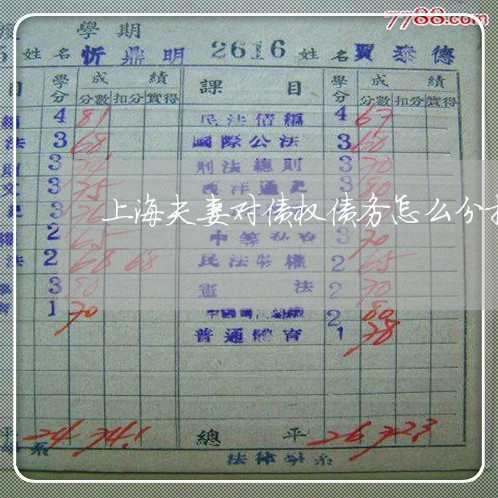 7788.com
學期
姓名 忻鼎明 2616 姓名 賈泰德
目 學分 成績 課目 學分 成績
分數 扣分 實得 分數 扣分 實得
4 81 民法債編 4 67
法 3 68 國際公法 3 60
3 刑法總則 3 70
文 3 75 西洋通史 3
上海夫妻对债权债务怎么分
2 65 3 70
法 2 68 68 民法物權 2 65
3 憲法 2 70
1 70 2
普通體育 1 78
平 24 74.1 總平 26 72.3
系 法律學系